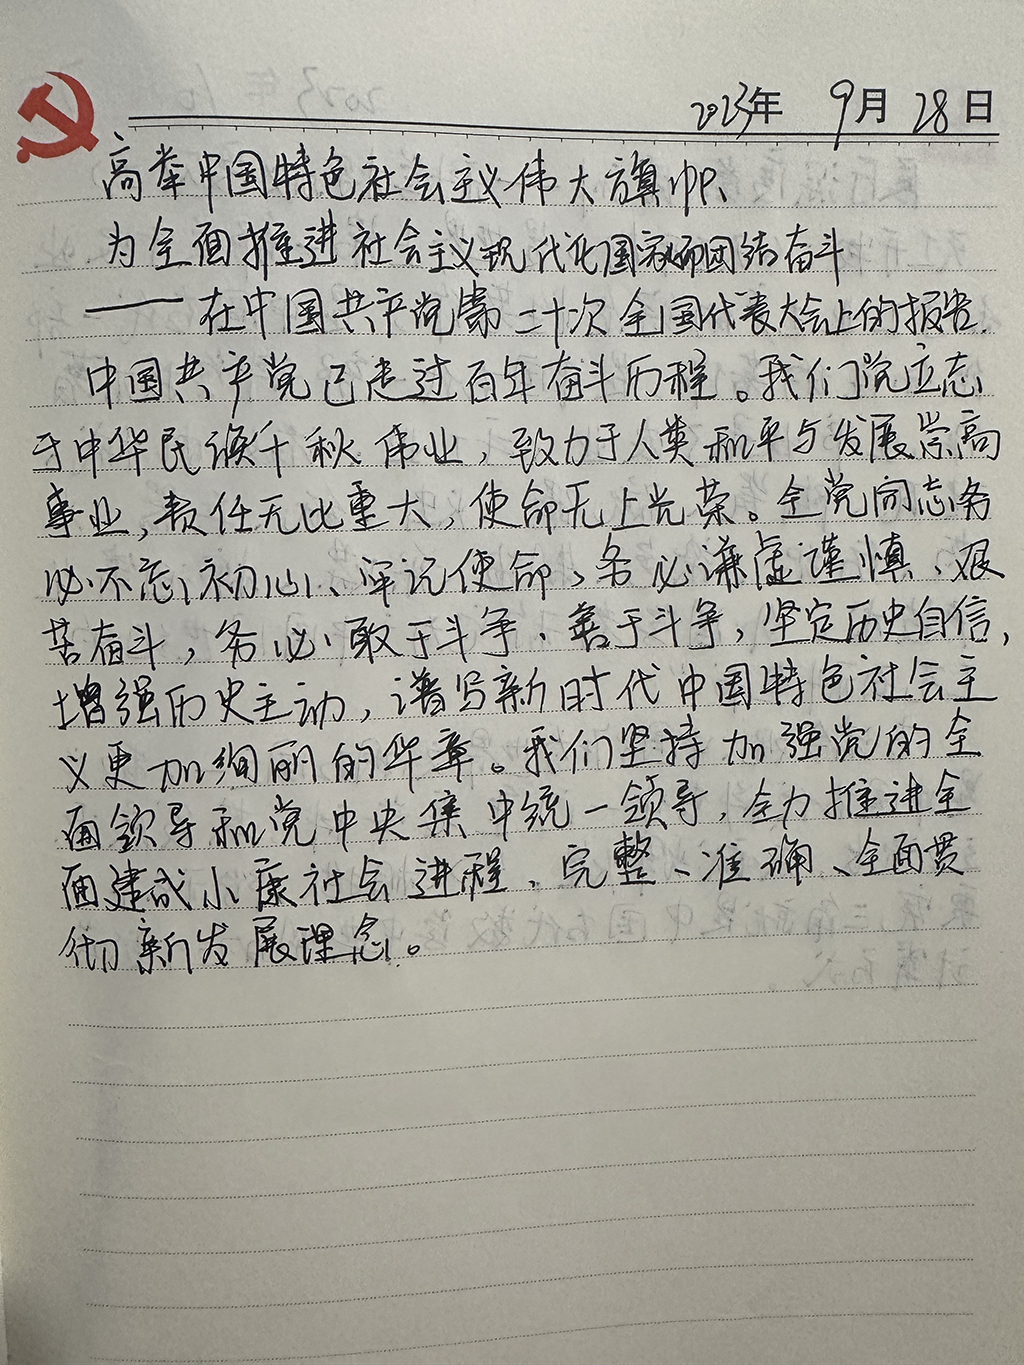 2023年 9月 28日
高举中国特色社会主义伟大旗帜、
为全面推进社会主义现代化国家而团结奋斗
——在中国共产党第二十次全国代表大会上的报告.
中国共产党已走过百年奋斗历程。我们党立志
于中华民族千秋伟业,致力于人类和平与发展崇高
事业,责任无比重大,使命无上光荣。全党同志务
必不忘初心、牢记使命、务必谦虚谨慎、艰
苦奋斗,务必敢于斗争、善于斗争,坚定历史自信,
增强历史主动,谱写新时代中国特色社会主
义更加绚丽的华章。我们坚持加强党的全
面领导和党中央集中统一领导,全力推进全
面建成小康社会进程、完整、准确、全面贯
彻新发展理念。